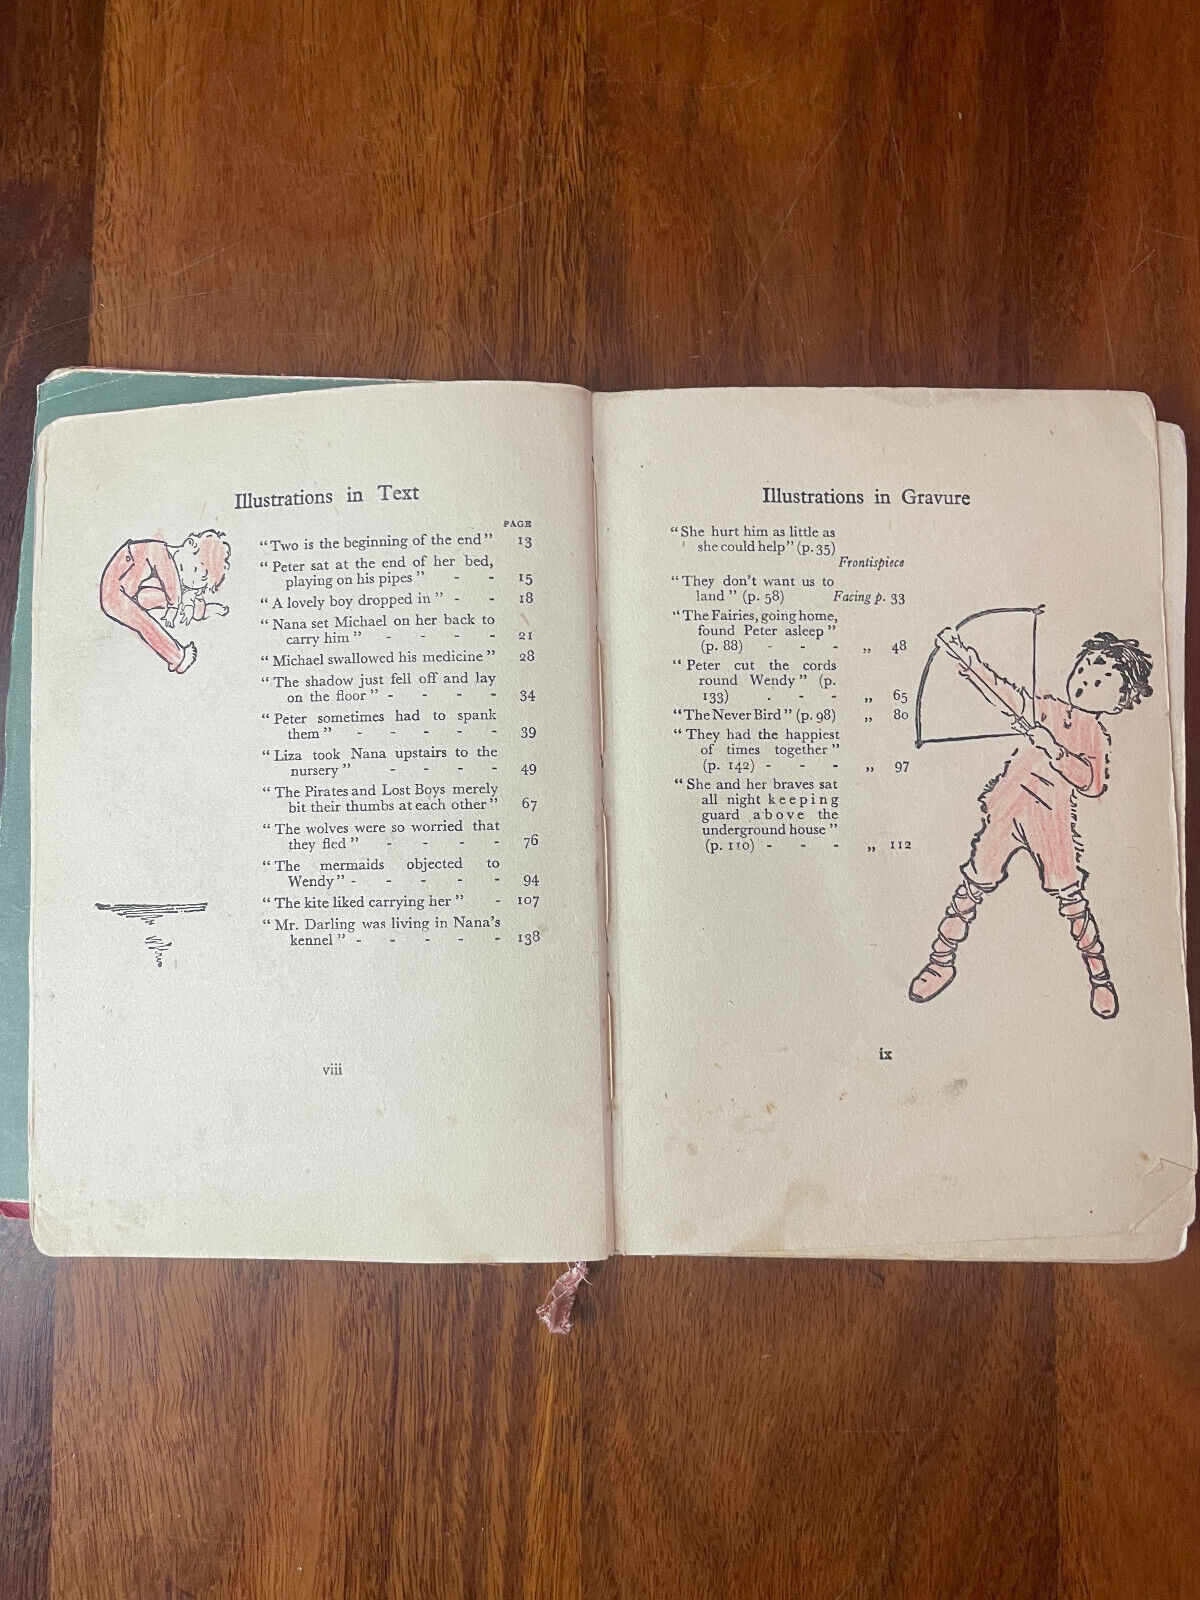 Illustrations in Text
PAGE
“Two is the beginning of the end” 13
“Peter sat at the end of her bed,
playing on his pipes” - - 15
“A lovely boy dropped in” - - 18
“Nana set Michael on her back to
carry him” - - - - 21
“Michael swallowed his medicine” 28
“The shadow just fell off and lay
on the floor” - - - - 34
“Peter sometimes had to spank
them” - - - - - 39
“Liza took Nana upstairs to the
nursery” - - - - 49
“The Pirates and Lost Boys merely
bit their thumbs at each other” 67
“The wolves were so worried that
they fled” - - - - 76
“The mermaids objected to
Wendy” - - - - - 94
“The kite liked carrying her” - 107
“Mr. Darling was living in Nana’s
kennel” - - - - - 138
viii
Illustrations in Gravure
“She hurt him as little as
she could help” (p. 35)
Frontispiece
“They don’t want us to
land” (p. 58) Facing p. 33
“The Fairies, going home,
found Peter asleep”
(p. 88) - - - „ 48
“Peter cut the cords
round Wendy” (p.
133) - - - „ 65
“The Never Bird” (p. 98) „ 80
“They had the happiest
of times together”
(p. 142) - - - „ 97
“She and her braves sat
all night keeping
guard above the
underground house”
(p. 110) - - - „ 112
ix